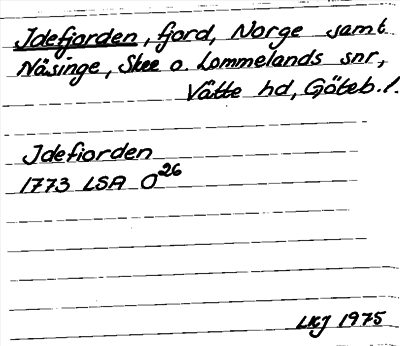 Idefjorden, fjord, Norge samt
Näsinge, Skee o. Lommelands snr,
Vätte hd, Göteb. l.
Idefiorden
1773 LSA O26
LKJ 1975